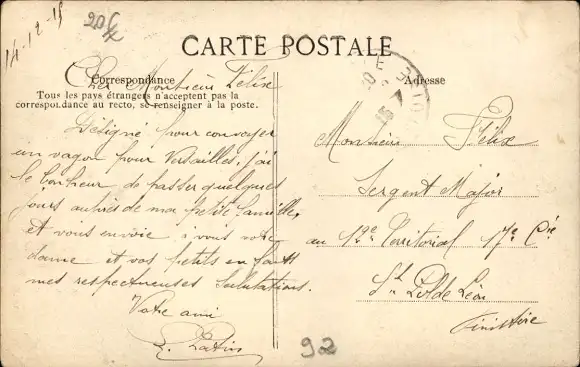 14-12-15
204
CARTE POSTALE
Correspondance
Adresse
Tous les pays étrangers n'acceptent pas la
correspondance au recto, se renseigner à la poste.
Cher Monsieur Félix
Désigné pour convoyer
un wagon pour Versailles, j'ai
le bonheur de passer quelques
jours auprès de ma petite famille,
et vous envoie à vous votre
dame et vos petits enfants
mes respectueuses Salutations.
Votre ami
Monsieur Félix
Sergent Major
au 12e Territorial 17e Cie
St Pol de Léon
Finistère
92